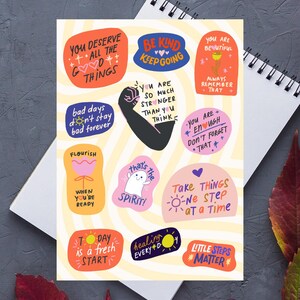 YOU DESERVE
ALL THE
GOOD
THINGS
BE KIND
KEEP GOING
YOU ARE
BEAUTIFUL
ALWAYS
REMEMBER
THAT
bad days
don't stay
bad forever
YOU ARE
SO MUCH
STRONGER
THAN YOU
THINK
YOU ARE
ENOUGH
DON'T FORGET
THAT
FLOURISH
WHEN
YOU'RE
READY
THAT'S THE
SPIRIT!
TAKE THINGS
ONE STEP
AT A TIME
TODAY
is a fresh
START
healing
EVERYDAY
LITTLE STEPS
MATTER